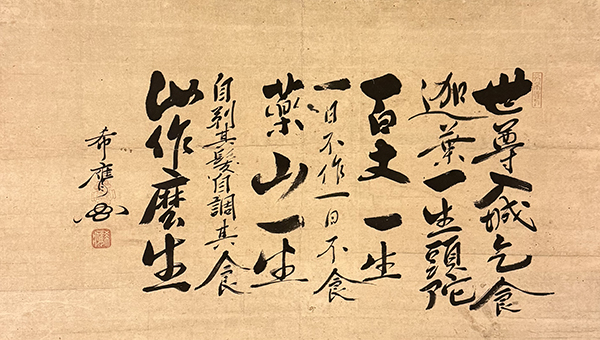 世尊入城乞食
迦葉一生頭陀
百丈一生
一日不作一日不食
藥山一生
自剃其髪自調其食
作麼生
希膺